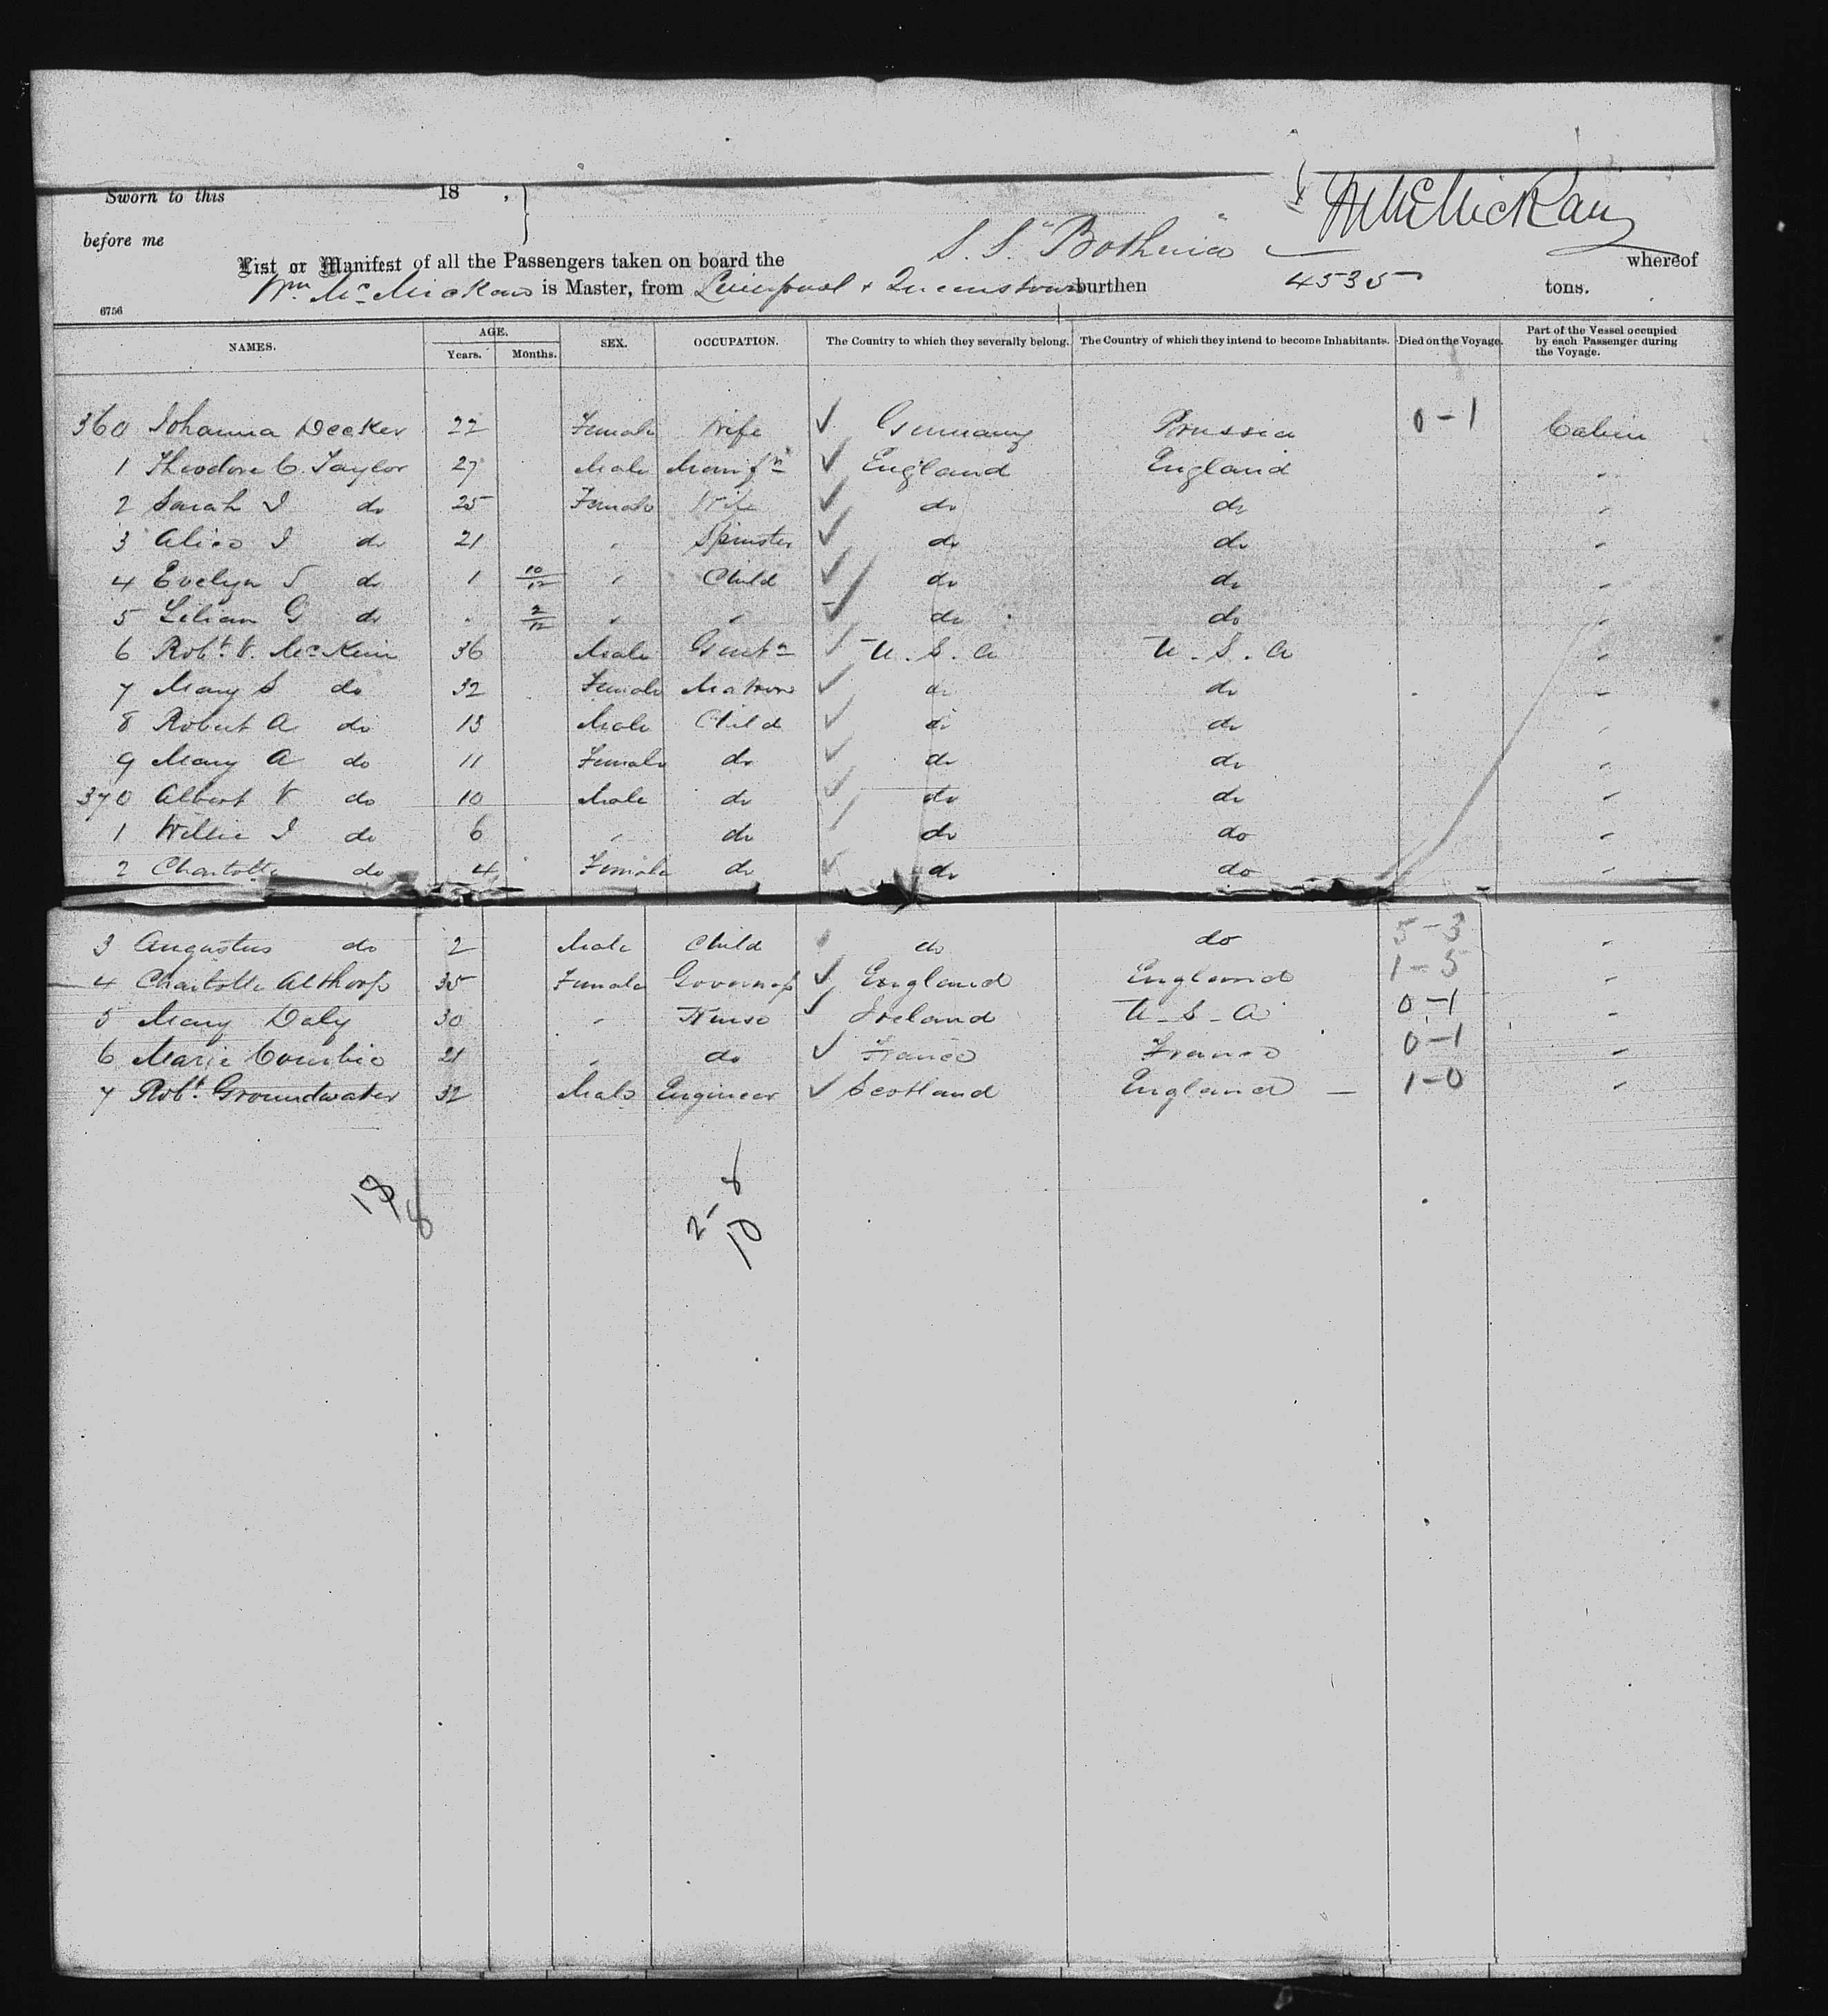 Sworn to this 18 ,
before me
WMcMickan
List or Manifest of all the Passengers taken on board the S.S. "Bothnia" whereof
Wm McMickan is Master, from Liverpool & Queenstown burthen 4535 tons.
6756
NAMES. AGE. Years. Months. SEX. OCCUPATION. The Country to which they severally belong. The Country of which they intend to become Inhabitants. Died on the Voyage. Part of the Vessel occupied by each Passenger during the Voyage.
360 Johanna Decker 22 Female Wife ✓ Germany Prussia 0-1 Cabin
1 Theodore C. Taylor 27 Male Manfr ✓ England England "
2 Sarah J do 25 Female Wife ✓ do do "
3 Alice I do 21 " Spinster ✓ do do "
4 Evelyn S do 1 10/12 " Child ✓ do do "
5 Lilian G do . 2/12 " " ✓ do do "
6 Robt. V. McKim 36 Male Gentn ✓ U.S.A U.S.A "
7 Mary S do 32 Female Matron ✓ do do "
8 Robert A do 13 Male Child ✓ do do "
9 Mary A do 11 Female do ✓ do do "
370 Albert V do 10 Male do ✓ do do "
1 Willie J do 6 " do ✓ do do "
2 Charlotte do 4 Female do ✓ do do "
3 Augustus do 2 Male Child do do 5-3 "
4 Charlotte Althorp 35 Female Governess ✓ England England 1-5 "
5 Mary Daly 30 " Nurse ✓ Ireland U-S-A 0-1 "
6 Marie 21 " do ✓ France France 0-1 "
7 Robt. Groundwater 32 Male Engineer ✓ Scotland England — 1-0 "